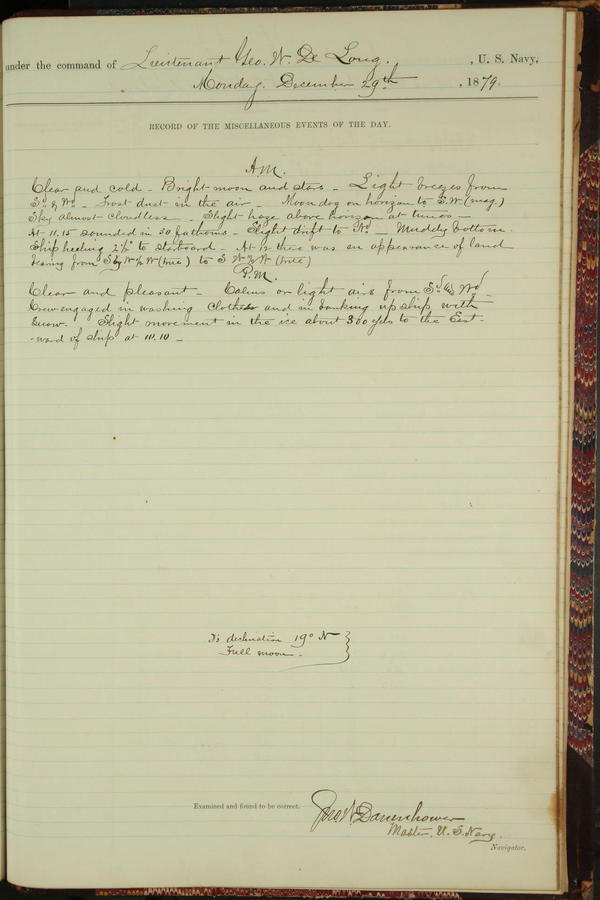 under the command of Lieutenant Geo. W. De Long. , U. S. Navy,
Monday. December 29th , 1879.
RECORD OF THE MISCELLANEOUS EVENTS OF THE DAY.
A.M.
Clear and cold - Bright moon and stars - Light breezes from
Sd & Wd - Frost dust in the air - Moondog on horizon to S.W (mag.)
Sky almost cloudless - Slight haze above horizon at times -
At 11.15 sounded in 30 fathoms - Slight drift to - Muddy bottom.
Ship heeling 2½° to starboard - At 12 there was an appearance of land
bearing from S by W ½ W (true) to S W ½ W (true)
P.M.
Clear and pleasant - Calms or light airs from Sd & Wd
Crew engaged in washing clothes and in banking up ship with
snow. Slight movement in the ice about 300 yds to the East-
-ward of ship at 10.10 -
D's declination 19° N
Full moon -
Examined and found to be correct.
Jno W Danenhower
Master, U. S. Navy.
Navigator.